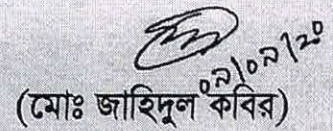 ০৯/০৯/২০
(মোঃ জাহিদুল কবির)